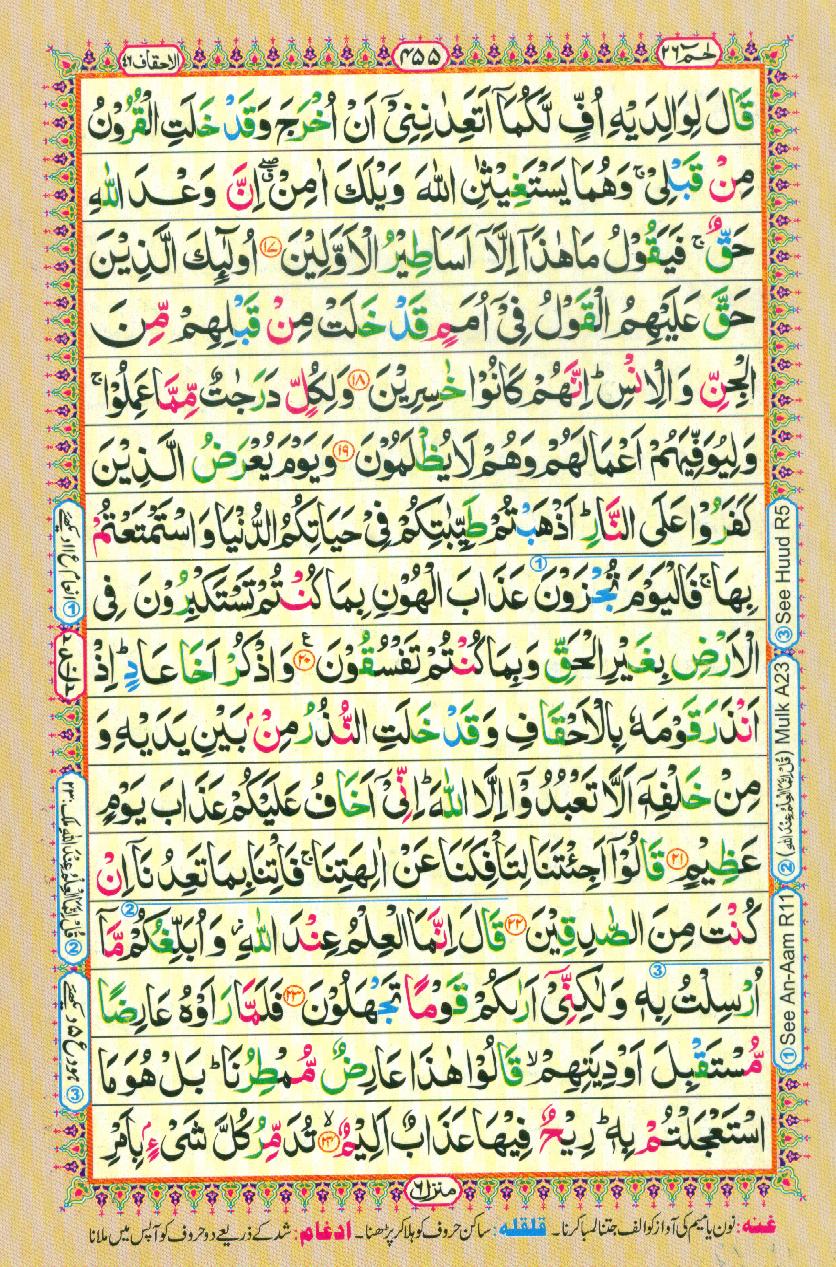 الاحقاف ٤٦
٤٥٥
حٰمٓ ٢٦
قَالَ لِوَالِدَيْهِ اُفٍّ لَّكُمَاۤ اَتَعِدٰنِنِيْۤ اَنْ اُخْرَجَ وَقَدْ خَلَتِ الْقُرُوْنُ
مِنْ قَبْلِيْ ۚ وَهُمَا يَسْتَغِيْثٰنِ اللّٰهَ وَيْلَكَ اٰمِنْ ۖۗ اِنَّ وَعْدَ اللّٰهِ
حَقٌّ ۚ فَيَقُوْلُ مَا هٰذَاۤ اِلَّاۤ اَسَاطِيْرُ الْاَوَّلِيْنَ ۝١٧ اُولٰٓئِكَ الَّذِيْنَ
حَقَّ عَلَيْهِمُ الْقَوْلُ فِيْۤ اُمَمٍ قَدْ خَلَتْ مِنْ قَبْلِهِمْ مِّنَ
الْجِنِّ وَالْاِنْسِ ؕ اِنَّهُمْ كَانُوْا خٰسِرِيْنَ ۝١٨ وَلِكُلٍّ دَرَجٰتٌ مِّمَّا عَمِلُوْا ۚ
وَلِيُوَفِّيَهُمْ اَعْمَالَهُمْ وَهُمْ لَا يُظْلَمُوْنَ ۝١٩ وَيَوْمَ يُعْرَضُ الَّذِيْنَ
كَفَرُوْا عَلَى النَّارِ ؕ اَذْهَبْتُمْ طَيِّبٰتِكُمْ فِيْ حَيَاتِكُمُ الدُّنْيَا وَاسْتَمْتَعْتُمْ
بِهَا ۚ فَالْيَوْمَ تُجْزَوْنَ عَذَابَ الْهُوْنِ بِمَا كُنْتُمْ تَسْتَكْبِرُوْنَ فِي
الْاَرْضِ بِغَيْرِ الْحَقِّ وَبِمَا كُنْتُمْ تَفْسُقُوْنَ ۝٢٠ ع وَاذْكُرْ اَخَا عَادٍ ؕ اِذْ
اَنْذَرَ قَوْمَهٗ بِالْاَحْقَافِ وَقَدْ خَلَتِ النُّذُرُ مِنْۢ بَيْنِ يَدَيْهِ وَ
مِنْ خَلْفِهٖۤ اَلَّا تَعْبُدُوْۤا اِلَّا اللّٰهَ ؕ اِنِّيْۤ اَخَافُ عَلَيْكُمْ عَذَابَ يَوْمٍ
عَظِيْمٍ ۝٢١ قَالُوْۤا اَجِئْتَنَا لِتَاْفِكَنَا عَنْ اٰلِهَتِنَا ۚ فَاْتِنَا بِمَا تَعِدُنَاۤ اِنْ
كُنْتَ مِنَ الصّٰدِقِيْنَ ۝٢٢ قَالَ اِنَّمَا الْعِلْمُ عِنْدَ اللّٰهِ ۖ وَاُبَلِّغُكُمْ مَّاۤ
اُرْسِلْتُ بِهٖ وَلٰكِنِّيْۤ اَرٰىكُمْ قَوْمًا تَجْهَلُوْنَ ۝٢٣ فَلَمَّا رَاَوْهُ عَارِضًا
مُّسْتَقْبِلَ اَوْدِيَتِهِمْ ۙ قَالُوْا هٰذَا عَارِضٌ مُّمْطِرُنَا ؕ بَلْ هُوَ مَا
اسْتَعْجَلْتُمْ بِهٖ ؕ رِيْحٌ فِيْهَا عَذَابٌ اَلِيْمٌ ۝٢٤ۙ تُدَمِّرُ كُلَّ شَيْءٍۭ بِاَمْرِ
① انعام ع ۱۱ دیکھئے
② قُلْ اِنَّمَا الْعِلْمُ عِنْدَ اللّٰهِ ملک: ۲۳
③ ہود ع ۵ دیکھئے
③ See Huud R5
② (قُلْ اِنَّمَا الْعِلْمُ عِنْدَ اللّٰهِ) Mulk A23
① See An-Aam R11
منزل ٦
غنه: نون یا میم کی آواز کو الف جتنا لمبا کرنا۔ قلقله: ساکن حروف کو ہلا کر پڑھنا۔ ادغام: شد کے ذریعے دو حروف کو آپس میں ملانا